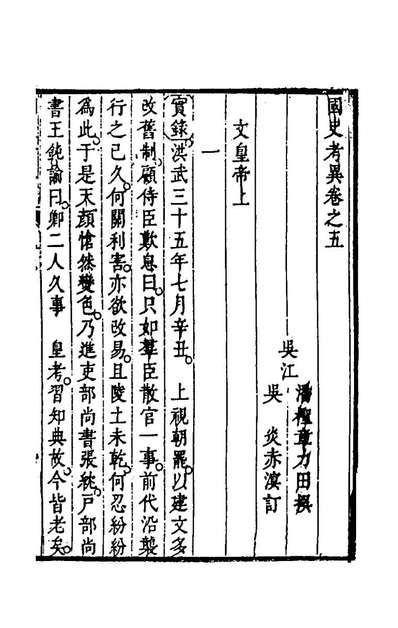 國史考異卷之五
吳江
潘檉章力田撰
吳 炎赤溟訂
文皇帝上
一
實錄洪武三十五年七月辛丑 上視朝罷以建文多
改舊制顧侍臣歎息曰只如羣臣散官一事前代沿襲
行之已久何關利害亦欲改易且陵土未乾何忍紛紛
為此于是天顏愴然變色乃進吏部尚書張紞戶部尚
書王鈍諭曰卿二人久事 皇考習知典故今皆老矣